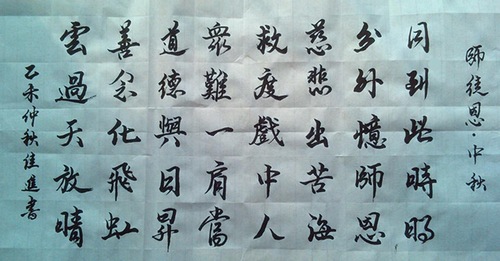 師徒恩·中秋
同到此時
分外憶師恩
慈悲出苦海
救度戲中人
眾難一肩當
道德與日昇
善念化飛虹
雲過天放晴
乙未仲秋佳進書